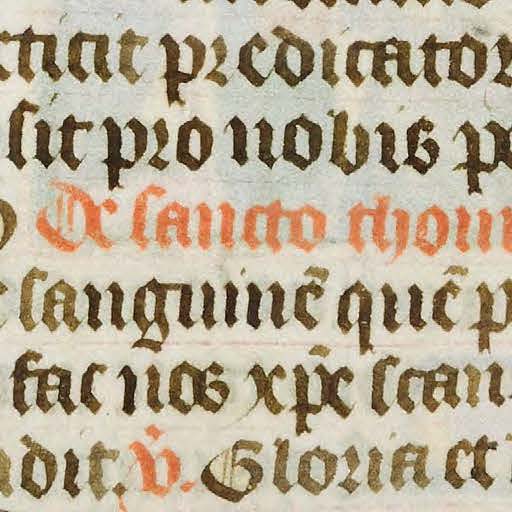 predicator
sit pro nobis p
De sancto thom
sanguinē quē p
fac nos xp̄e scan
dit. v̄. Gloria et